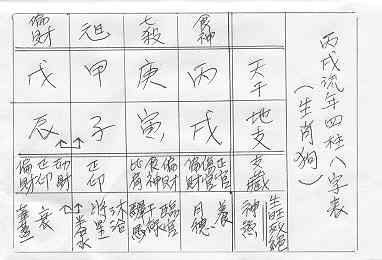 丙戌流年四柱八字表
(生肖狗)
偏財 元旦 七殺 食神
戊 甲 庚 丙 天干
辰 子 寅 戌 地支
偏財 正印 劫財 正印 比肩 食神 偏財 偏財 傷官 正官 支藏
華蓋 衰 將星 沐浴 驛馬 干祿 臨官 月德 養 神煞